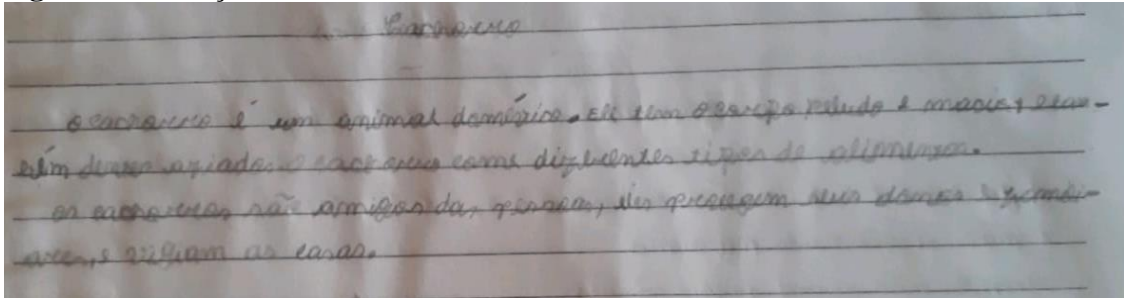 Cachorro
O cachorro é um animal doméstico. Ele tem o corpo peludo e macio, e tam-
bém dentes afiados. O cachorro come diferentes tipos de alimentos.
os cachorros são amigos das pessoas, eles protegem seus donos e
e vigiam as casas.